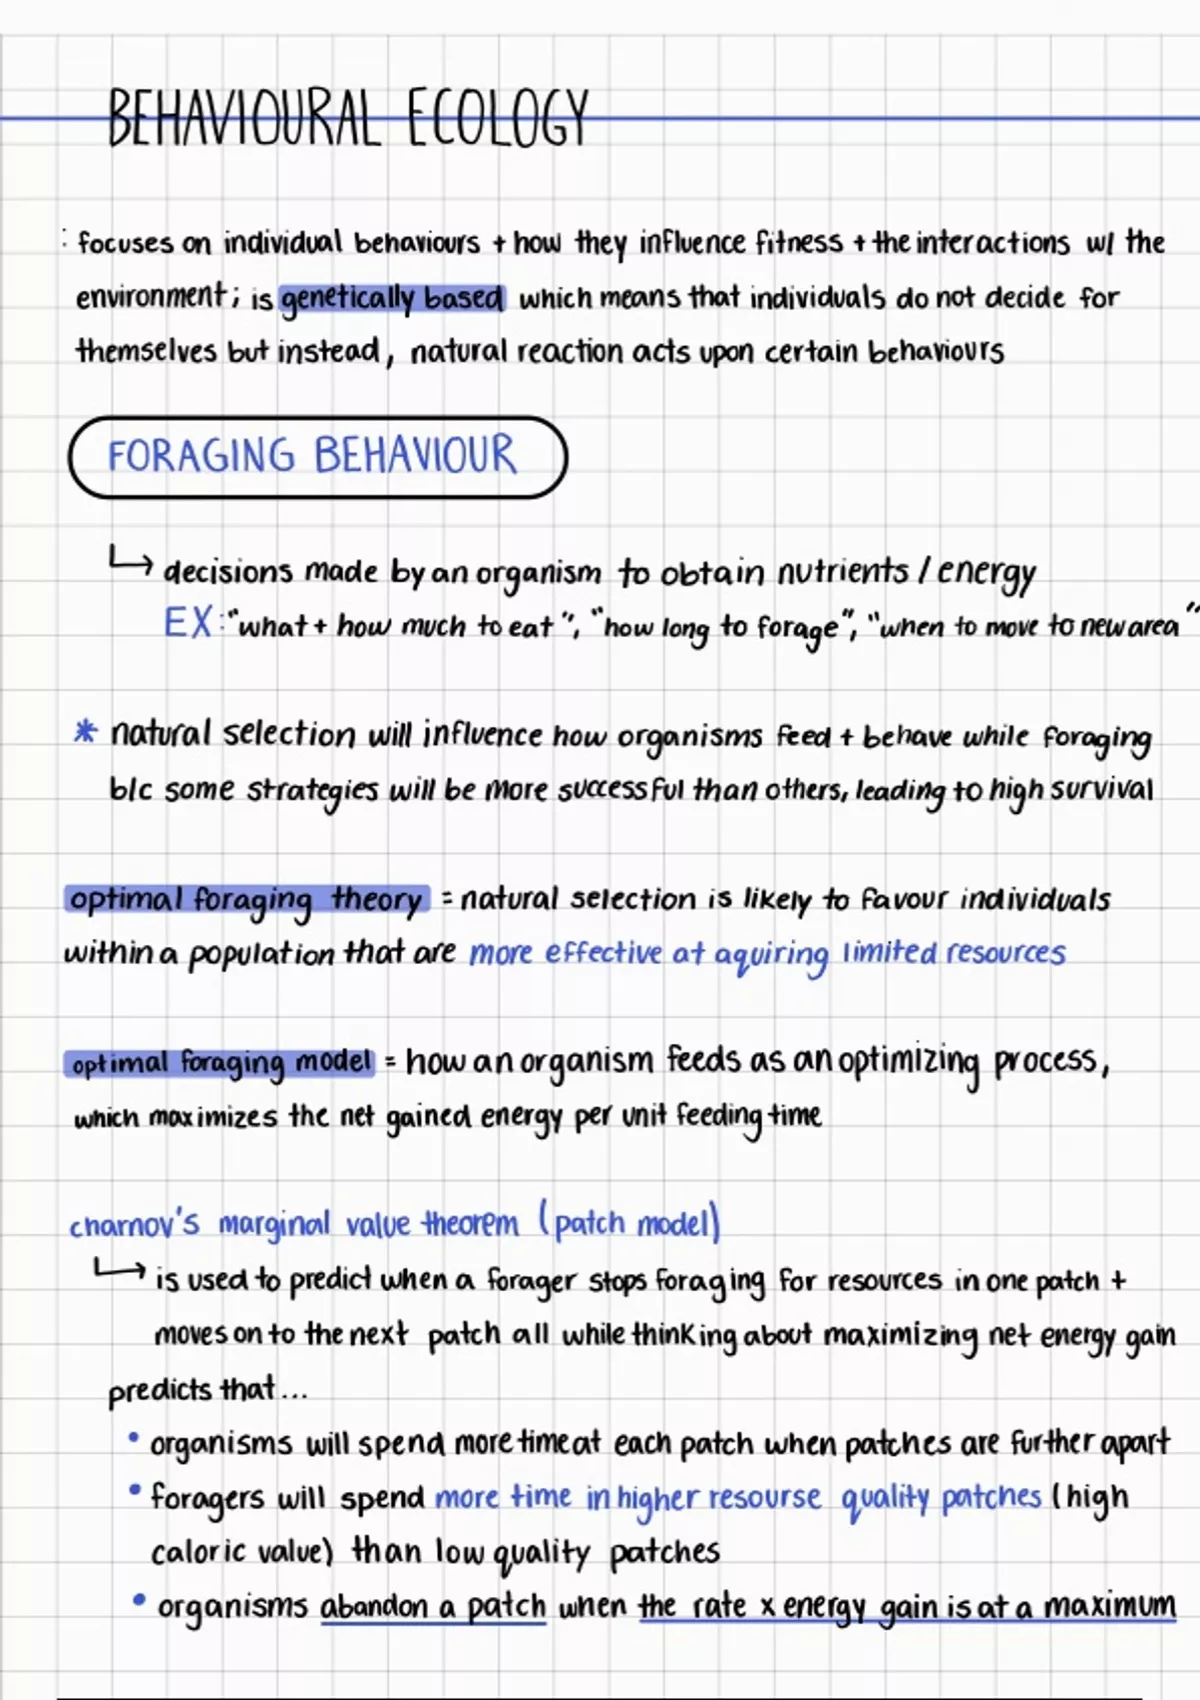 BEHAVIOURAL ECOLOGY
: focuses on individual behaviours + how they influence fitness + the interactions w/ the
environment; is genetically based which means that individuals do not decide for
themselves but instead, natural reaction acts upon certain behaviours
FORAGING BEHAVIOUR
↳ decisions made by an organism to obtain nutrients / energy
EX: "what + how much to eat", "how long to forage", "when to move to new area"
* natural selection will influence how organisms feed + behave while foraging
b/c some strategies will be more successful than others, leading to high survival
optimal foraging theory = natural selection is likely to favour individuals
within a population that are more effective at aquiring limited resources
optimal foraging model = how an organism feeds as an optimizing process,
which maximizes the net gained energy per unit feeding time
charnov's marginal value theorem (patch model)
↳ is used to predict when a forager stops foraging for resources in one patch +
moves on to the next patch all while thinking about maximizing net energy gain
predicts that...
• organisms will spend more time at each patch when patches are further apart
• foragers will spend more time in higher resourse quality patches (high
caloric value) than low quality patches
• organisms abandon a patch when the rate x energy gain is at a maximum